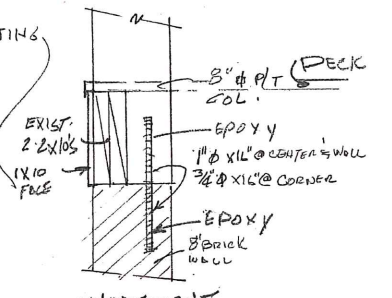 TING
8" φ P/T
COL.
DECK
EXIST.
2-2x10's
1x10
FACE
EPOXY
1" φ x16" @ CENTER'S WALL
3/4" φ x16" @ CORNER
EPOXY
8" BRICK
WALL